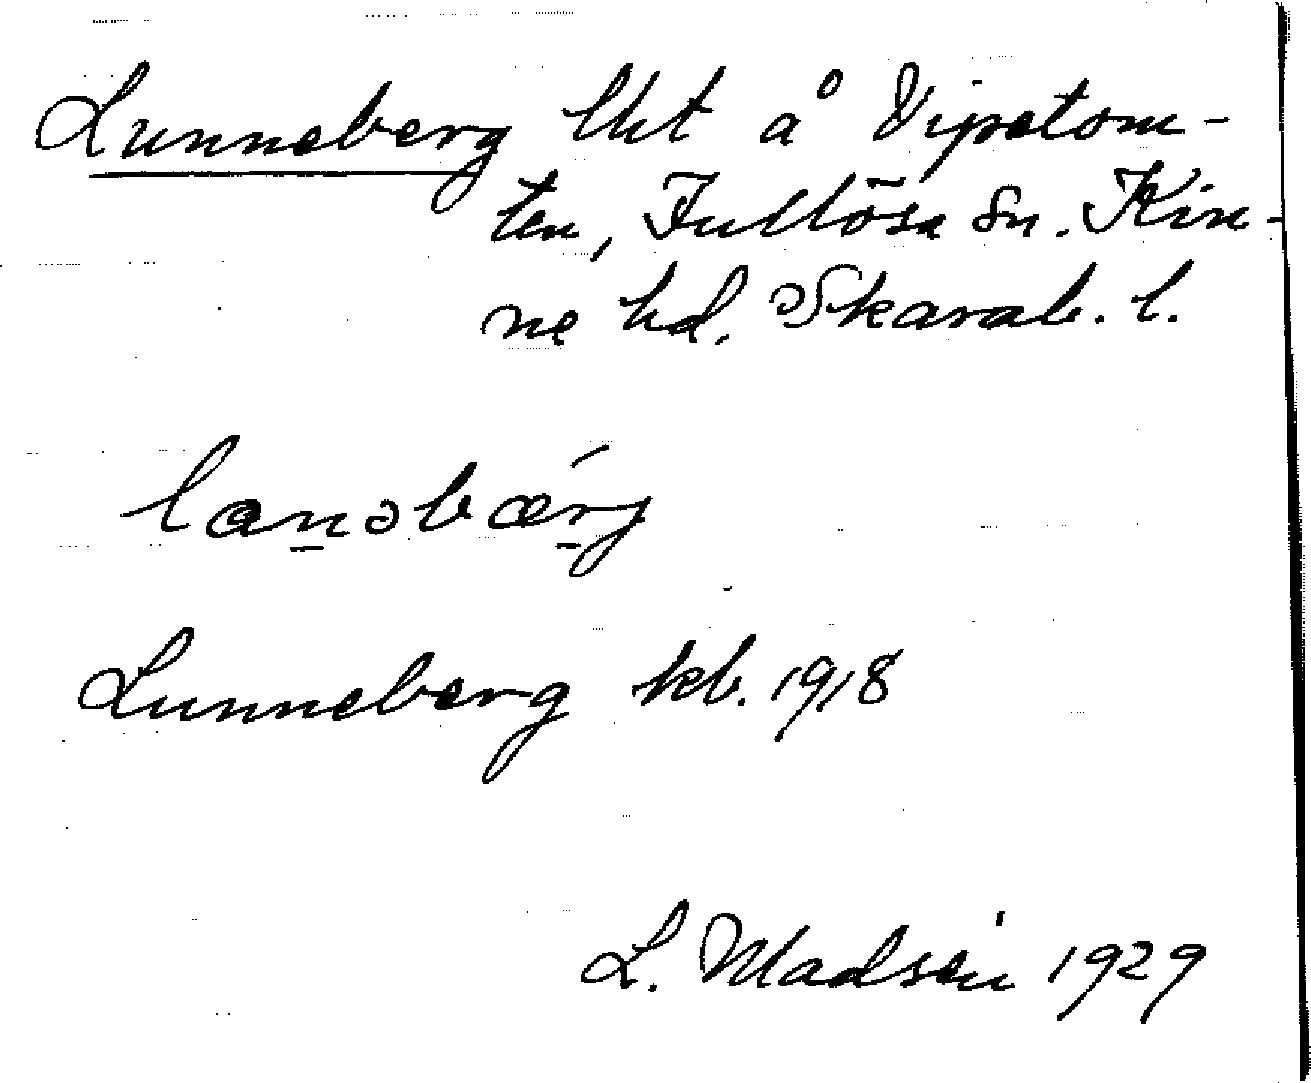 Lunneberg lht å Vipetom-
ten, Fullösa Sn. Kin-
ne hd. Skarab. l.
lanəbærj
Lunneberg kb. 1918
L. Madsén 1929